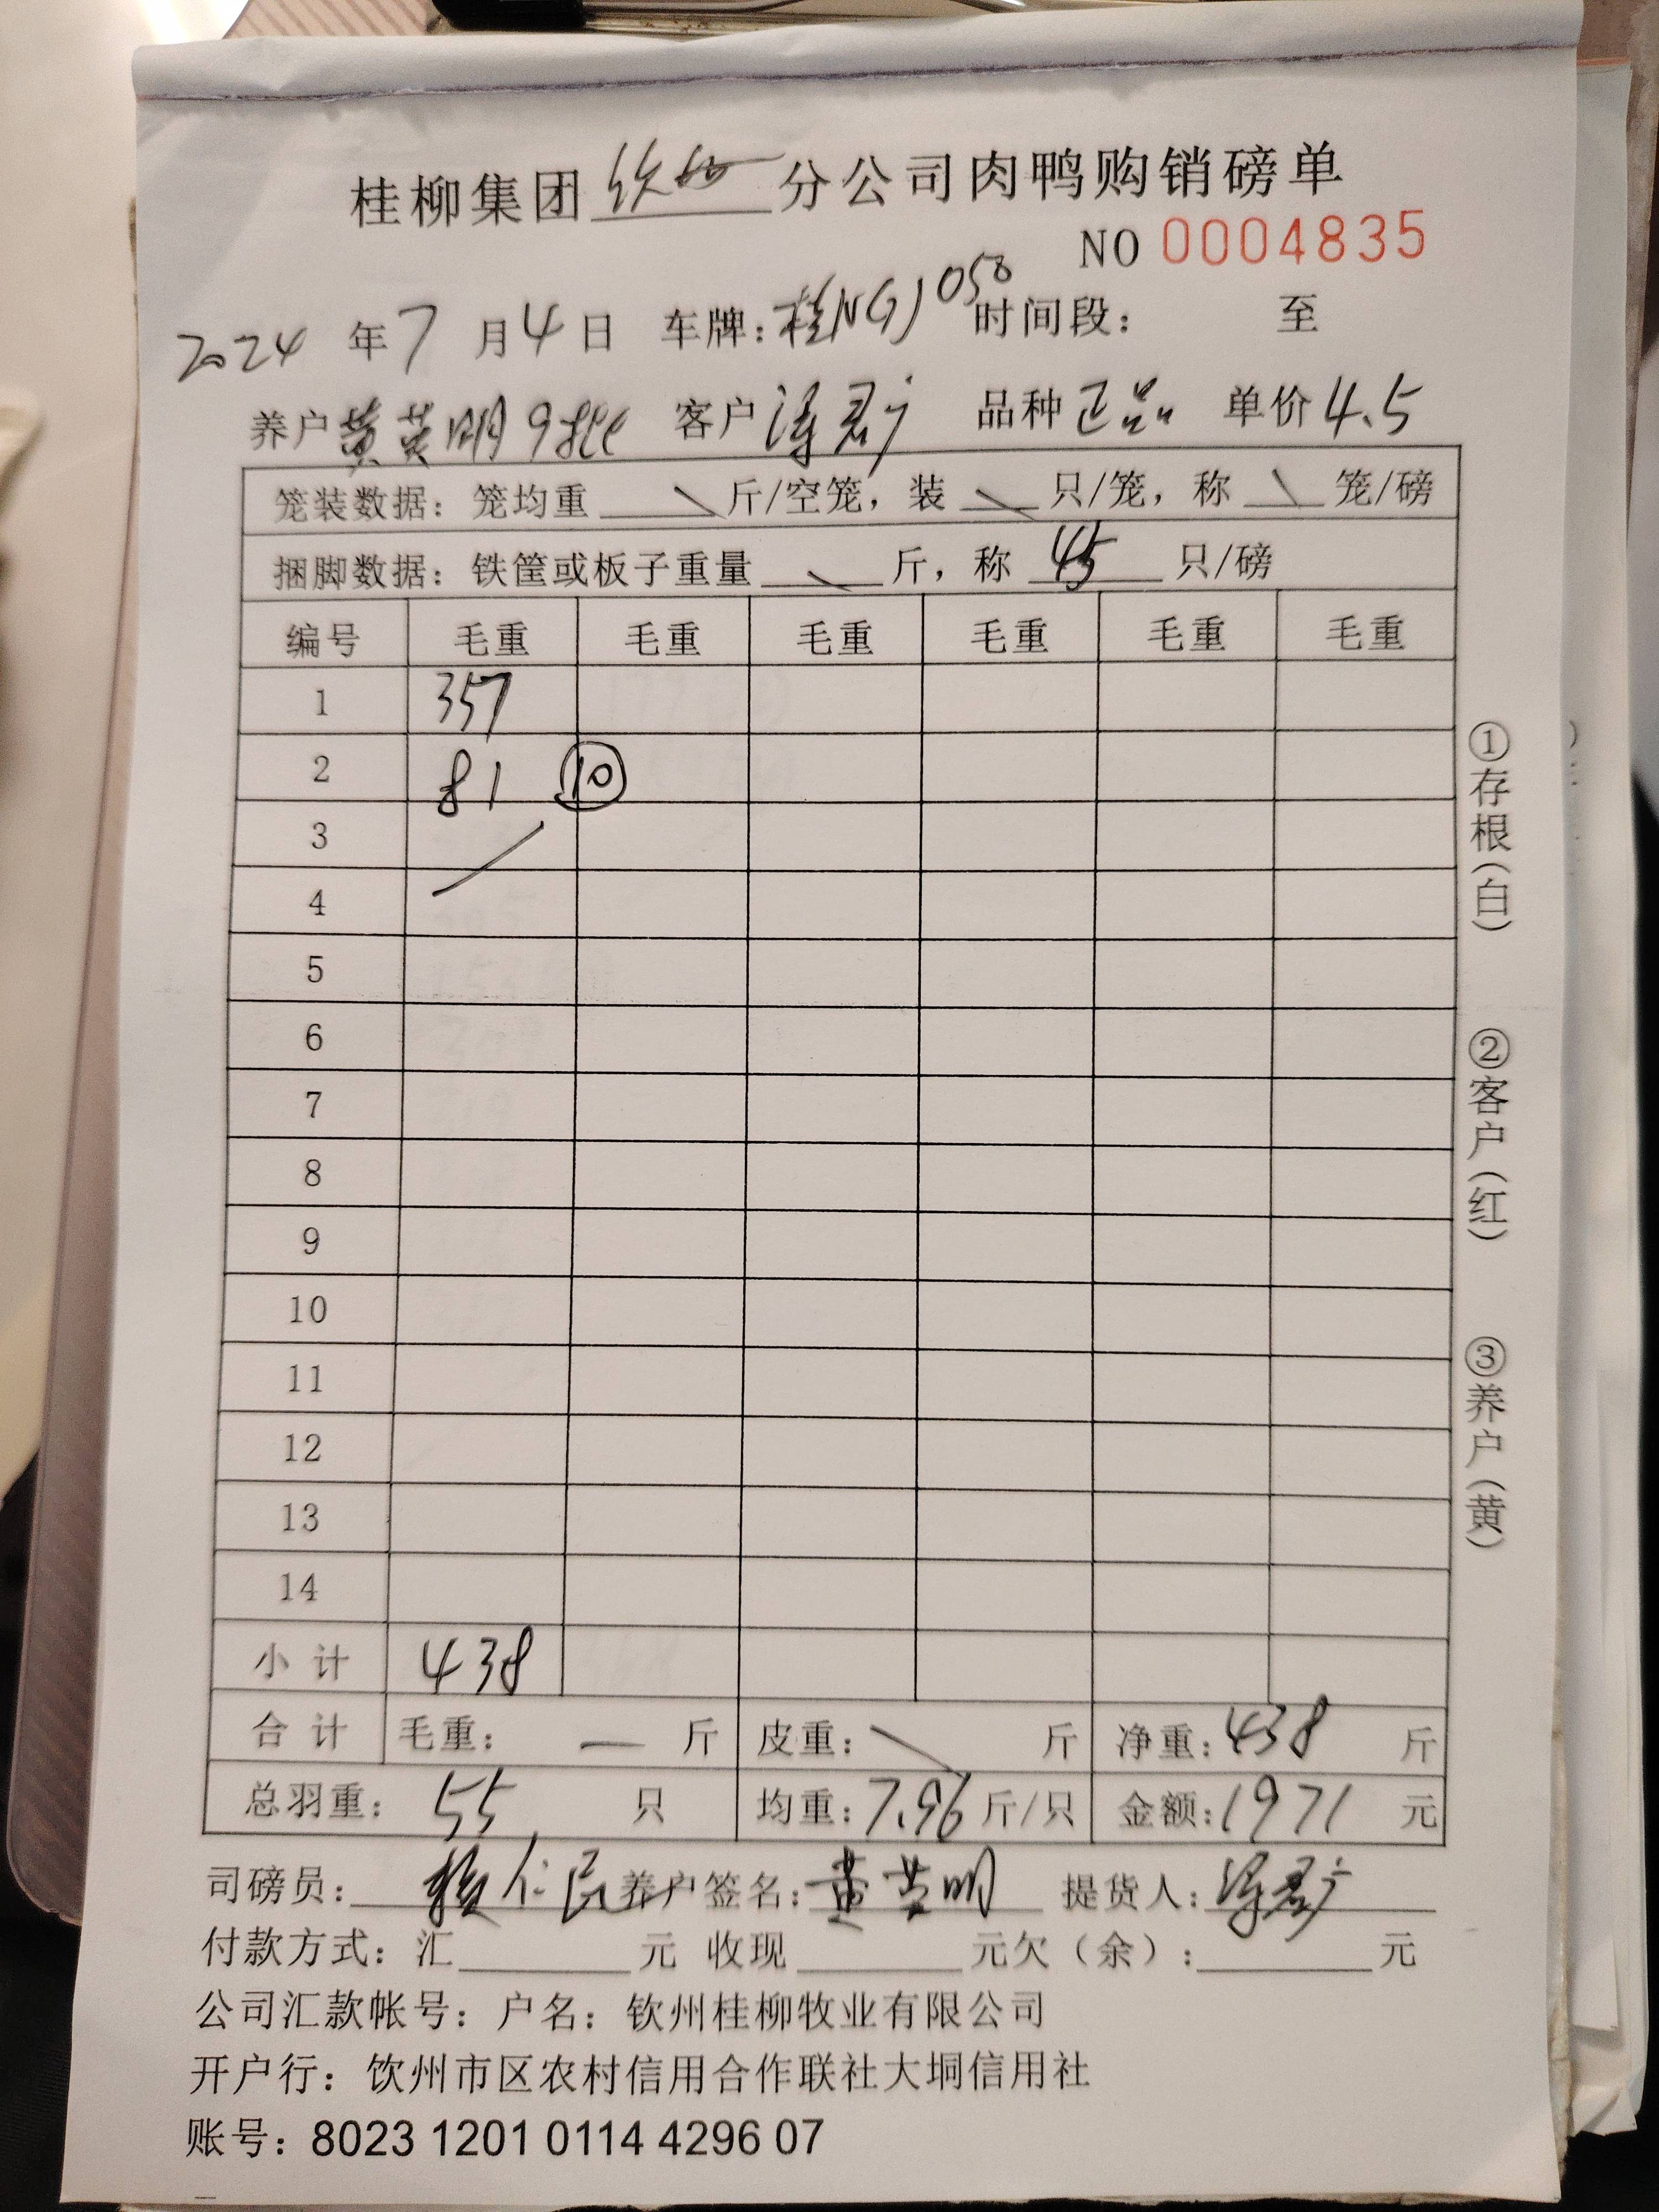 桂柳集团钦州分公司肉鸭购销磅单
NO 0004835
2024年7月4日 车牌:桂NG1050 时间段: 至
养户 黄英明 客户 品种 正品 单价 4.5
笼装数据: 笼均重 \ 斤/空笼, 装 \ 只/笼, 称 \ 笼/磅
捆脚数据: 铁筐或板子重量 \ 斤, 称 45 只/磅
编号 毛重 毛重 毛重 毛重 毛重 毛重
1 357
2 81 ⑩
3
4
5
6
7
8
9
10
11
12
13
14
小计 438
合计 毛重: — 斤 皮重: \ 斤 净重: 438 斤
总羽重: 55 只 均重: 7.96 斤/只 金额: 1971 元
司磅员: 养户签名: 黄英明 提货人:
付款方式: 汇 元 收现 元欠(余): 元
公司汇款帐号: 户名: 钦州桂柳牧业有限公司
开户行: 钦州市区农村信用合作联社大垌信用社
账号: 8023 1201 0114 4296 07
①存根(白)
②客户(红)
③养户(黄)